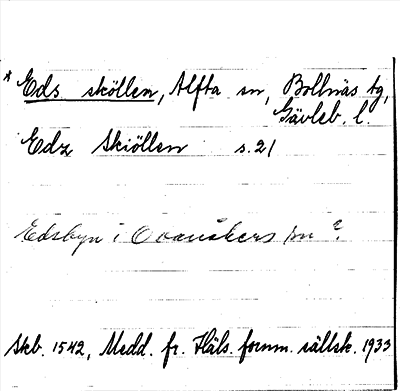 * Eds sköllen, Alfta sn, Bollnäs tg,
Gävleb. l.
Edz Skiöllen s. 21
Edsbyn i Ovanåkers sn?
Skb. 1542, Medd. fr. Häls. fornm. sällsk. 1933